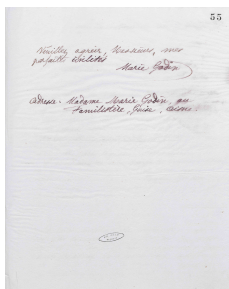 55
Veuillez agréer, Messieurs, mes
parfaites civilités
Marie Godin
Adresse : Madame Marie Godin, au
Familistère, Guise, Aisne